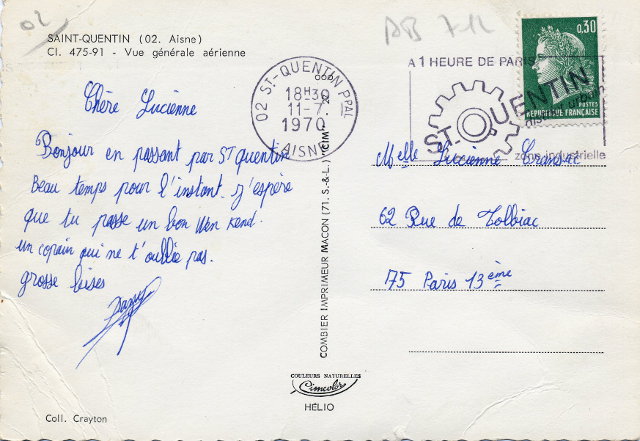 02
SAINT-QUENTIN (02. Aisne)
Cl. 475-91 - Vue générale aérienne
Chère Lucienne
Bonjour en passant par ST quentin
Beau temps pour l'instant. j'espère
que tu passe un bon Wen Kend.
un copain qui ne t'oublie pas.
grosse bises
Coll. Crayton
02 ST-QUENTIN PPAL
18H30
11-7
1970
AISNE
COMBIER IMPRIMEUR MACON (71, S.-&-L.) "CIM"
COULEURS NATURELLES
Cimcolor
HÉLIO
AB 7-12
A 1 HEURE DE PARIS
ST-QUENTIN
zone industrielle
0,30
POSTES
RÉPUBLIQUE FRANÇAISE
Melle Lucienne
62 Rue de Tolbiac
75 Paris 13ème